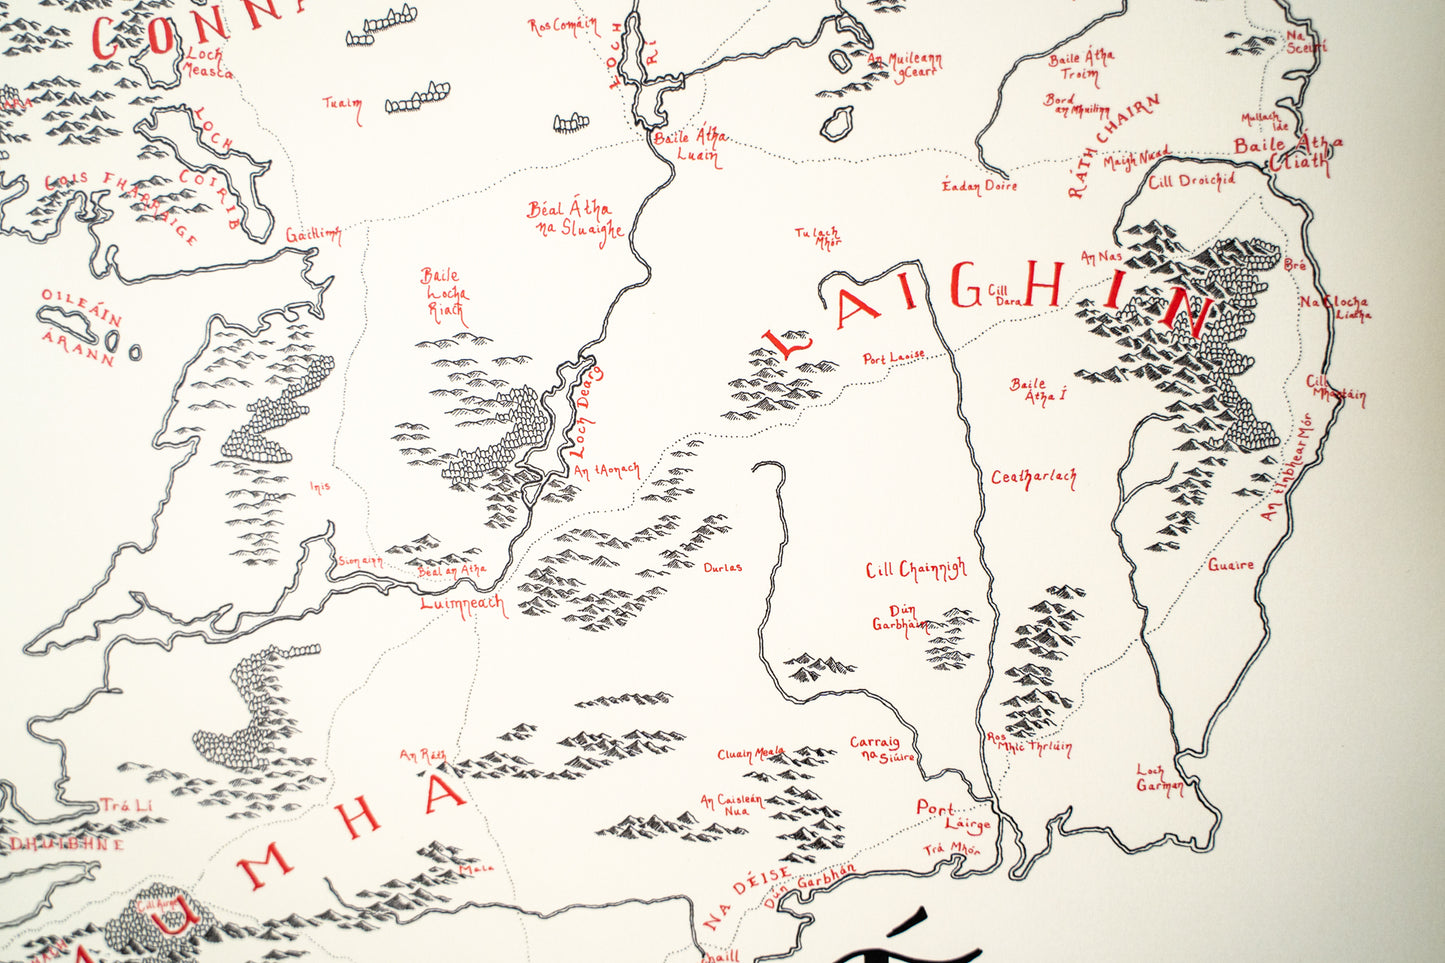 CONN
Loch
Measca
Tuaim
Ros Comáin
LOCH
RÍ
An Muileann
gCearr
Baile Átha
Troim
Bord
an Mhuilinn
Na
Sceirí
RÁTH CHAIRN
Mullach
Íde
Baile Átha
Cliath
Maigh Nuad
Cill Droichid
LOCH
COIRIB
COIS FHARRAIGE
Baile Átha
Luain
Éadan Doire
Gaillimh
Béal Átha
na Sluaighe
Tulach
Mhór
An Nas
Bré
Baile
Locha
Riach
OILEÁIN
ÁRANN
LAIGHIN
Cill
Dara
Na Clocha
Liatha
Port Laoise
Loch Dearg
Baile
Átha Í
Cill
Mhantáin
An tInbhear Mór
An tAonach
Ceatharlach
Inis
Sionainn
Béal an Átha
Luimneach
Durlas
Cill Chainnigh
Guaire
Dún
Garbháin
An Ráth
Cluain Meala
Carraig
na Siúire
Ros
Mhic Thriúin
Loch
Garman
Trá Lí
An Caisleán
Nua
Port
Láirge
Trá Mhór
DHUIBHNE
UMHA
Mala
NA DÉISE
Dún Garbhán